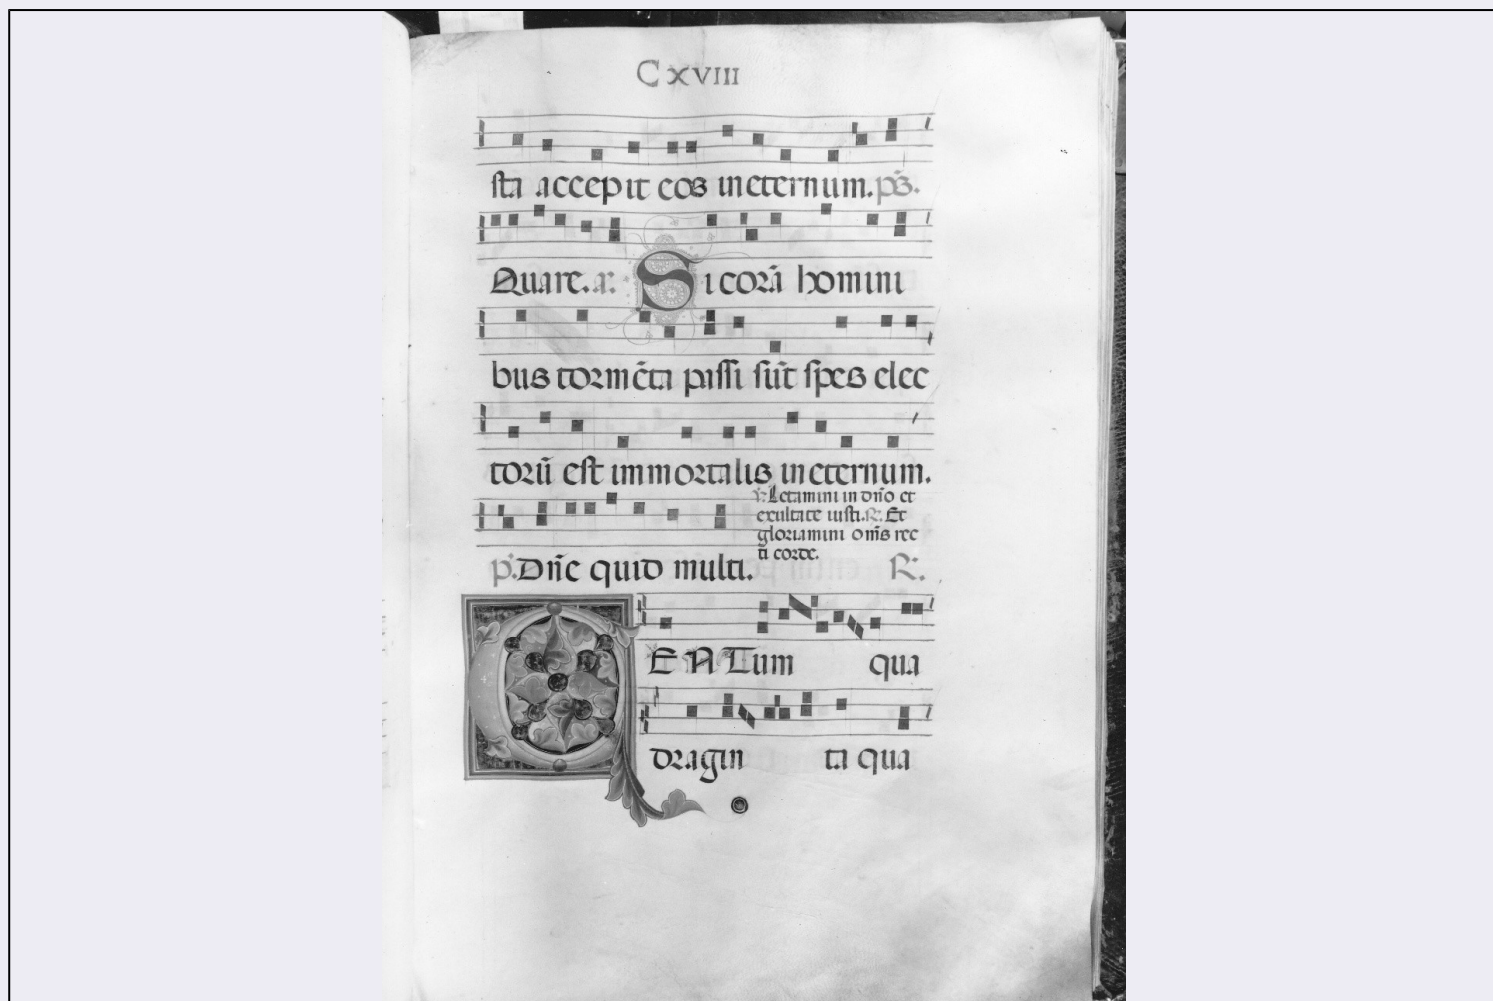 CXVIII
sta accepit eos in eternum. p̄s.
Quare. a: Si corā homini
bus tormēta passi sūt spes elec
torū est immortalis in eternum.
℣: Letamini in dn̄o et
exultate iusti. ℟: Et
gloriamini om̄s rec
ti corde.
p̄. Dn̄e quid multi. ℟.
CENTum qua
dragin ta qua